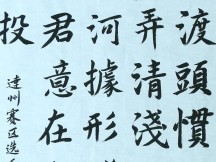 渡頭慣
弄清淺
河據形
君意在
投
達州賽区选